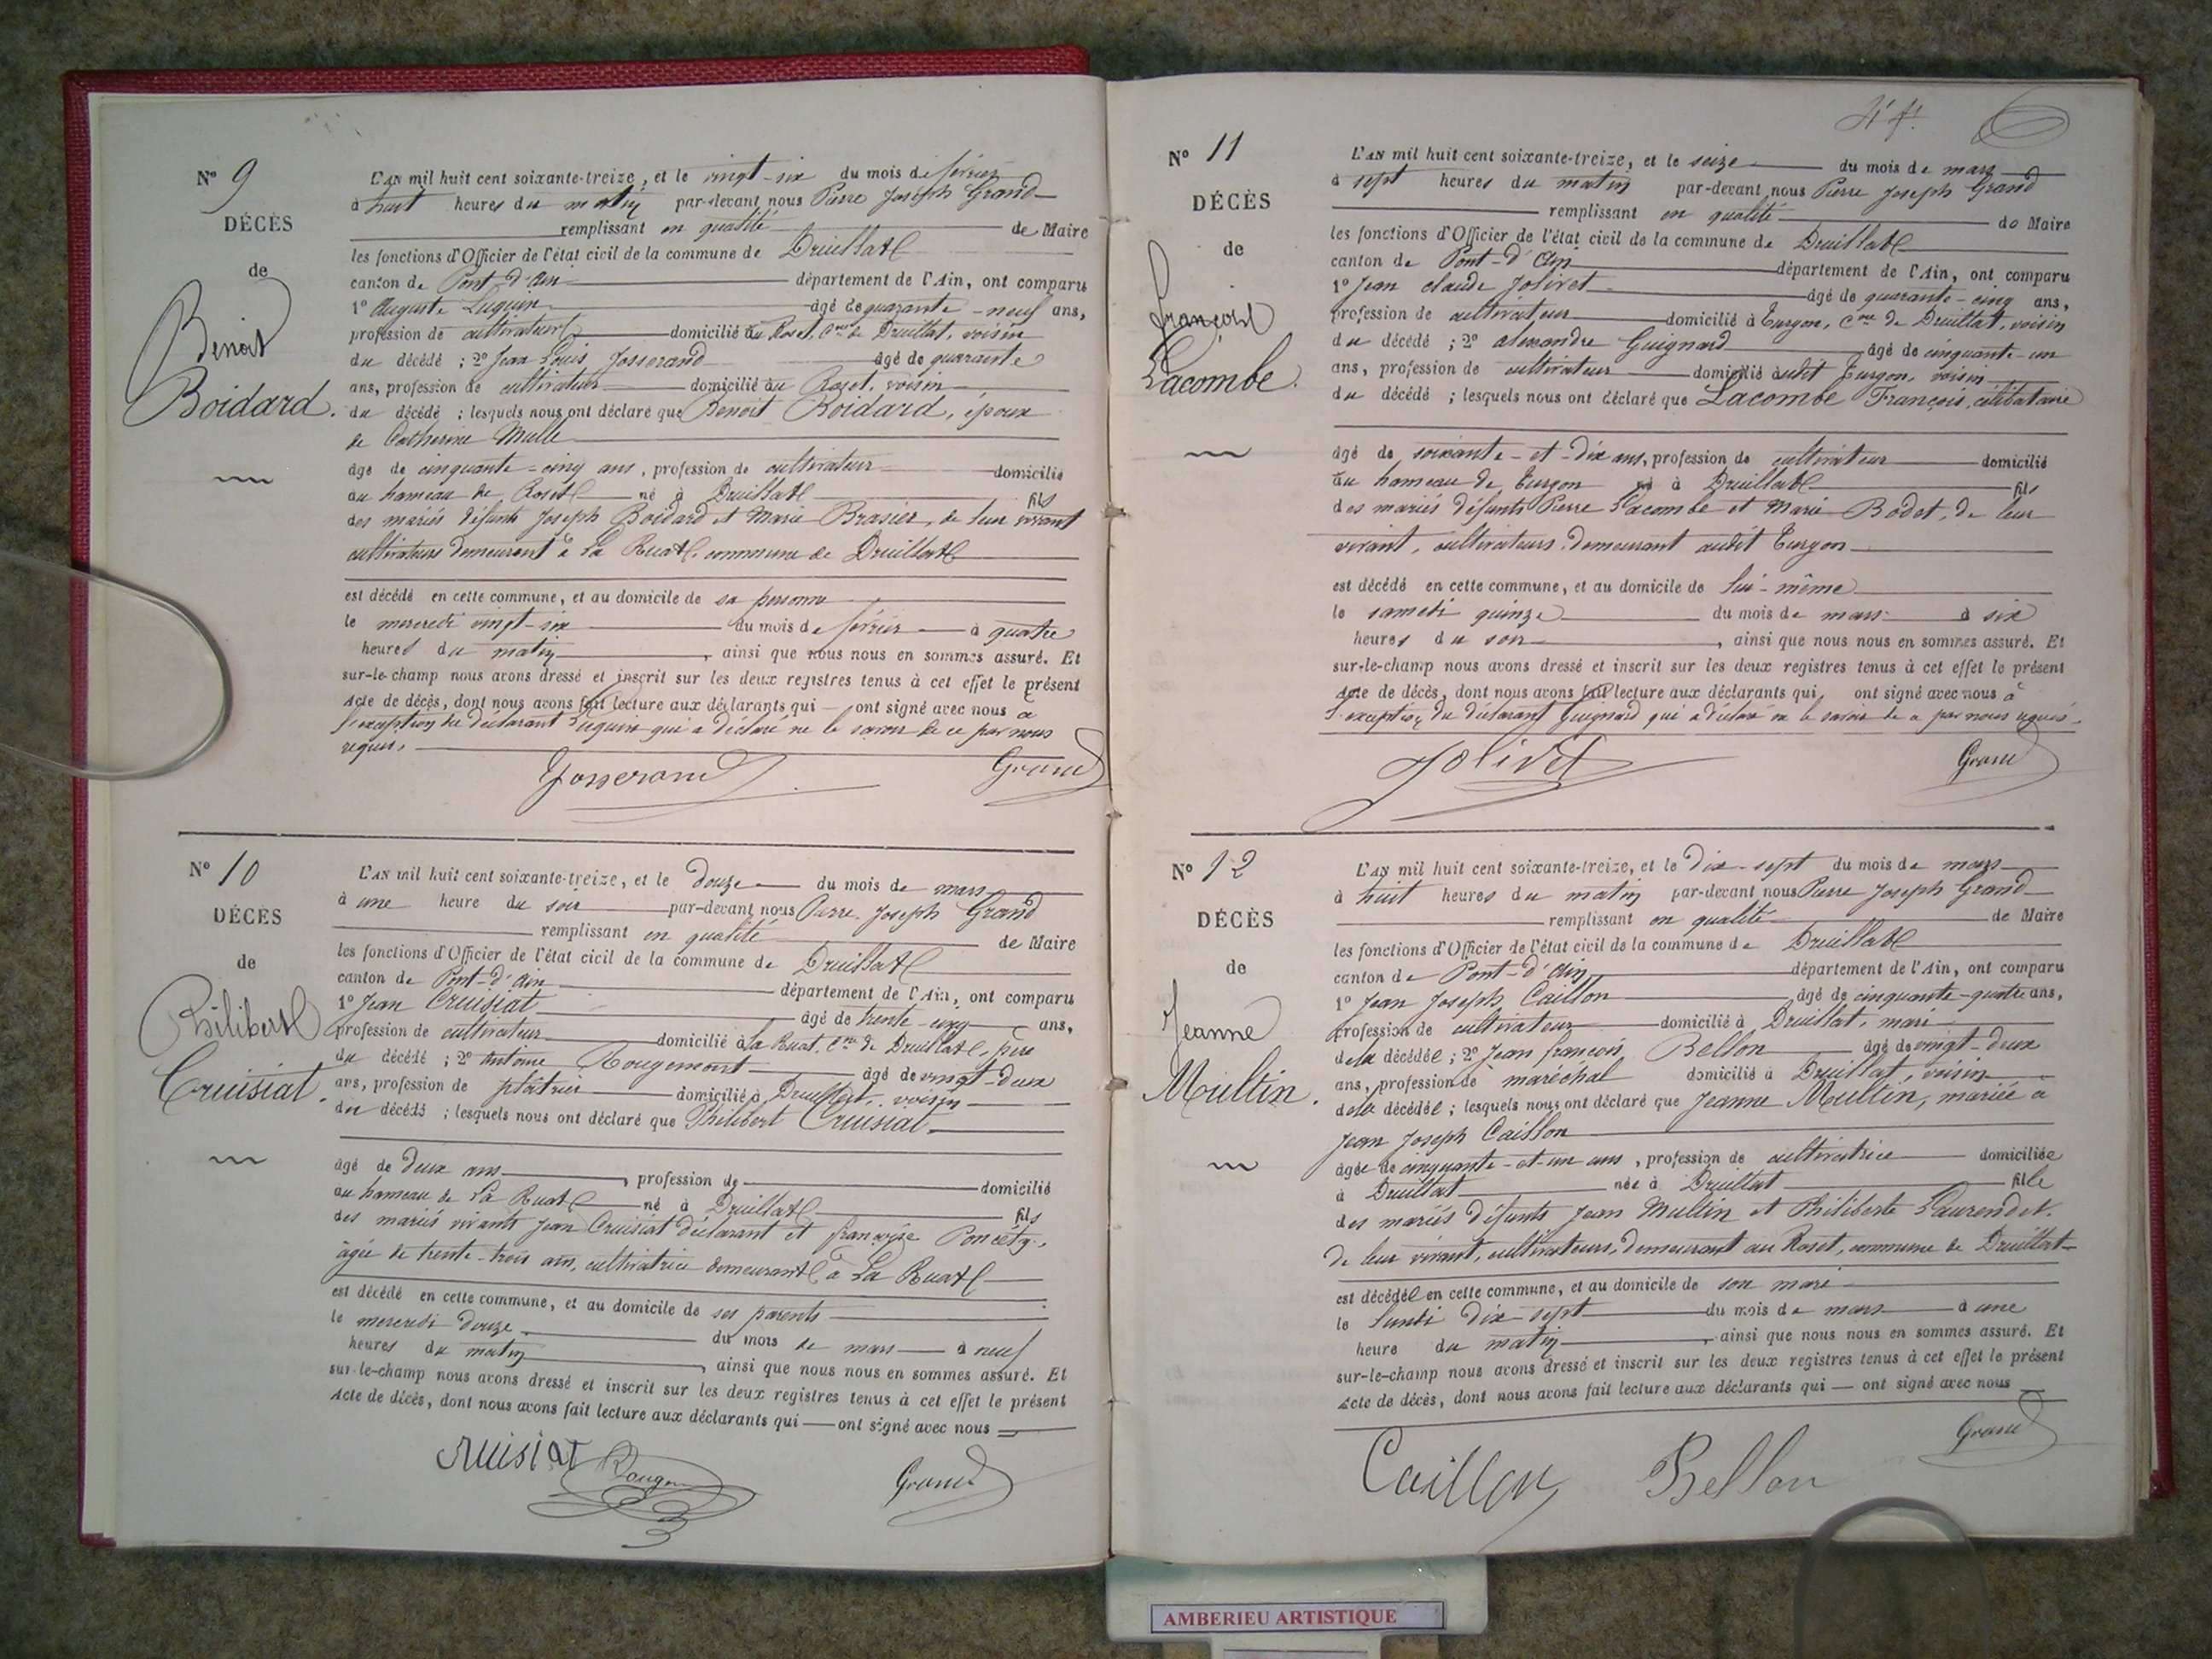 Nº 9
DÉCÈS
de
Benoit
Boidard.
L'AN mil huit cent soixante-treize, et le vingt-six du mois de février
à huit heures du matin par-devant nous Pierre Joseph Grand
remplissant en qualité de Maire
les fonctions d'Officier de l'état civil de la commune de Druillat
canton de Pont-d'Ain département de l'Ain, ont comparu
1º Auguste Luguin âgé de quarante-neuf ans,
profession de cultivateur domicilié au Roset, Cne de Druillat, voisin
du décédé ; 2º Jean Louis Josserand âgé de quarante
ans, profession de cultivateur domicilié au Roset, voisin
du décédé ; lesquels nous ont déclaré que Benoit Boidard, époux
de Catherine Mulle
âgé de cinquante-cinq ans, profession de cultivateur domicilié
au hameau de Roset né à Druillat fils
des mariés défunts Joseph Boidard et Marie Brasier, de leur vivant
cultivateurs demeurant à La Ruat, commune de Druillat
est décédé en cette commune, et au domicile de sa personne
le mercredi vingt-six du mois de février à quatre
heures du matin, ainsi que nous nous en sommes assuré. Et
sur-le-champ nous avons dressé et inscrit sur les deux registres tenus à cet effet le présent
Acte de décès, dont nous avons fait lecture aux déclarants qui ont signé avec nous à
l'exception du déclarant Luguin qui a déclaré ne le savoir de ce par nous
requis.
Josserand Grand
Nº 10
DÉCÈS
de
Philibert
Cruisiat.
L'AN mil huit cent soixante-treize, et le douze du mois de mars
à une heure du soir par-devant nous Pierre Joseph Grand
remplissant en qualité de Maire
les fonctions d'Officier de l'état civil de la commune de Druillat
canton de Pont-d'Ain département de l'Ain, ont comparu
1º Jean Cruisiat âgé de trente-cinq ans,
profession de cultivateur domicilié à La Ruat, Cne de Druillat, père
du décédé ; 2º Antoine Rougemont âgé de vingt-deux
ans, profession de plâtrier domicilié à Druillat, voisin
du décédé ; lesquels nous ont déclaré que Philibert Cruisiat
âgé de deux ans, profession de domicilié
au hameau de La Ruat né à Druillat fils
des mariés vivants Jean Cruisiat déclarant et françoise Poncéty,
âgée de trente-trois ans, cultivatrice demeurant à La Ruat
est décédé en cette commune, et au domicile de ses parents
le mercredi douze du mois de mars à neuf
heures du matin, ainsi que nous nous en sommes assuré. Et
sur-le-champ nous avons dressé et inscrit sur les deux registres tenus à cet effet le présent
Acte de décès, dont nous avons fait lecture aux déclarants qui ont signé avec nous
Cruisiat Grand
Nº 11
DÉCÈS
de
françois
Lacombe.
L'AN mil huit cent soixante-treize, et le seize du mois de mars
à sept heures du matin par-devant nous Pierre Joseph Grand
remplissant en qualité de Maire
les fonctions d'Officier de l'état civil de la commune de Druillat
canton de Pont-d'Ain département de l'Ain, ont comparu
1º Jean claude Jolivet âgé de quarante-cinq ans,
profession de cultivateur domicilié à Turgon, Cne de Druillat, voisin
du décédé ; 2º alexandre Guignard âgé de cinquante-un
ans, profession de cultivateur domicilié audit Turgon, voisin
du décédé ; lesquels nous ont déclaré que Lacombe François, célibataire
âgé de soixante-et-dix ans, profession de cultivateur domicilié
au hameau de Turgon né à Druillat fils
des mariés défunts Pierre Lacombe et Marie Bodet, de leur
vivant, cultivateurs demeurant audit Turgon
est décédé en cette commune, et au domicile de lui-même
le samedi quinze du mois de mars à six
heures du soir, ainsi que nous nous en sommes assuré. Et
sur-le-champ nous avons dressé et inscrit sur les deux registres tenus à cet effet le présent
Acte de décès, dont nous avons fait lecture aux déclarants qui, ont signé avec nous à
l'exception du déclarant Guignard qui a déclaré ne le savoir de ce par nous requis.
Jolivet Grand
Nº 12
DÉCÈS
de
Jeanne
Multin.
L'AN mil huit cent soixante-treize, et le dix-sept du mois de mars
à huit heures du matin par-devant nous Pierre Joseph Grand
remplissant en qualité de Maire
les fonctions d'Officier de l'état civil de la commune de Druillat
canton de Pont-d'Ain département de l'Ain, ont comparu
1º Jean Joseph Caillon âgé de cinquante-quatre ans,
profession de cultivateur domicilié à Druillat, mari
de la décédée ; 2º Jean françois Bellon âgé de vingt-deux
ans, profession de maréchal domicilié à Druillat, voisin
de la décédée ; lesquels nous ont déclaré que Jeanne Multin, mariée à
Jean Joseph Caillon
âgée de cinquante-et-un ans, profession de cultivatrice domiciliée
à Druillat née à Druillat fille
des mariés défunts Jean Multin et Philiberte Laurendet.
de leur vivant, cultivateurs, demeurant au Roset, commune de Druillat
est décédée en cette commune, et au domicile de son mari
le lundi dix-sept du mois de mars à une
heure du matin, ainsi que nous nous en sommes assuré. Et
sur-le-champ nous avons dressé et inscrit sur les deux registres tenus à cet effet le présent
Acte de décès, dont nous avons fait lecture aux déclarants qui — ont signé avec nous
Caillon Bellon Grand
AMBERIEU ARTISTIQUE